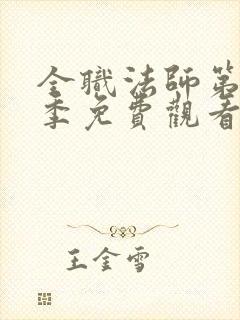 全職法師第
季免費觀看
王金雪